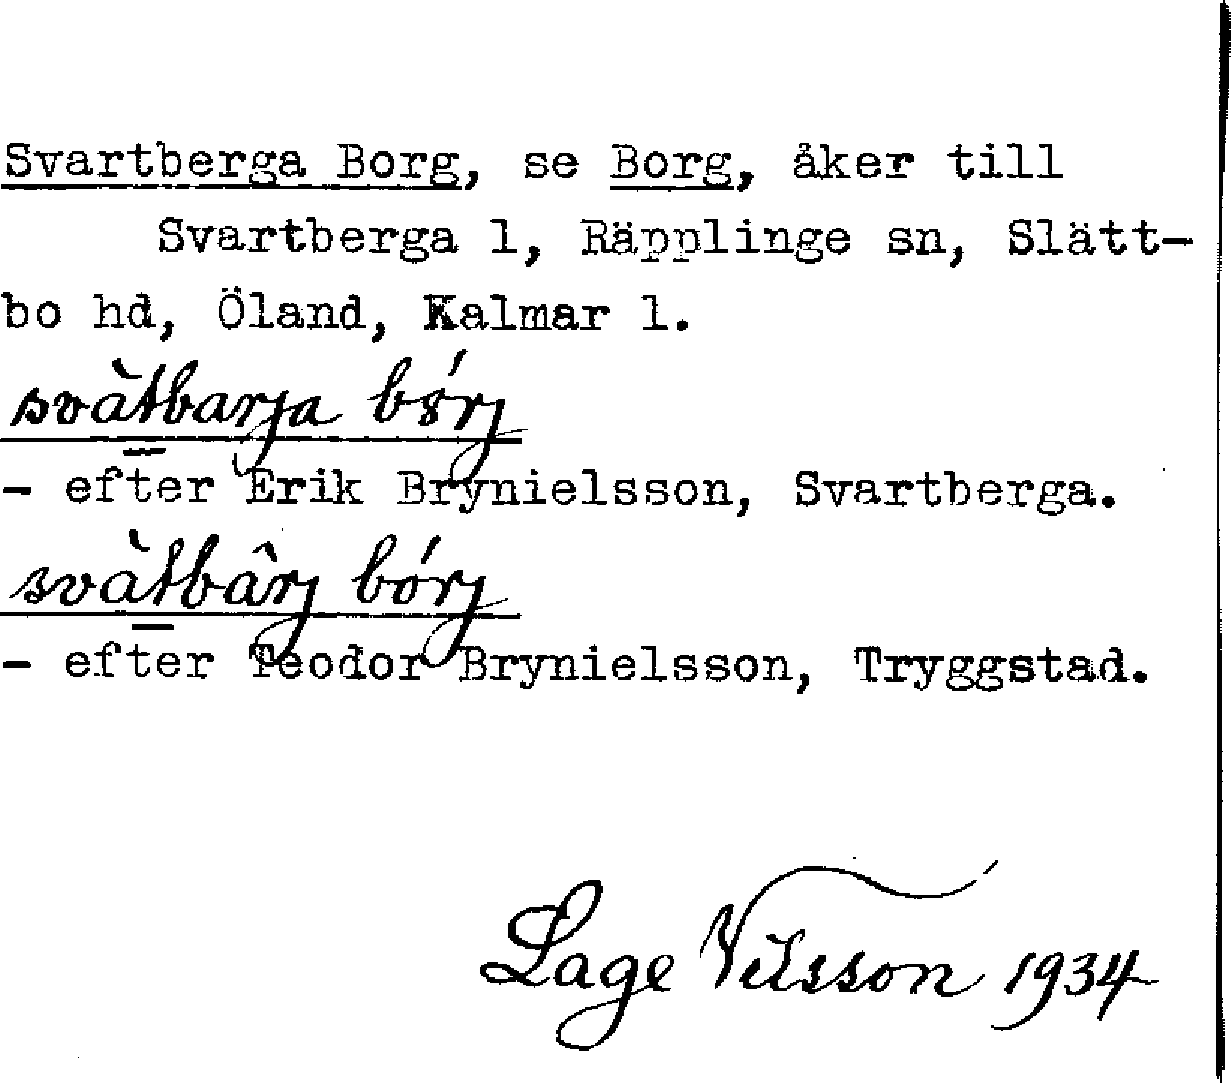 Svartberga Borg, se Borg, åker till
Svartberga 1, Räpplinge sn, Slätt-
bo hd, Öland, Kalmar l.
svàtbarja bórj
- efter Erik Brynielsson, Svartberga.
svàtbârj bórj
- efter Teodor Brynielsson, Tryggstad.
Lage Nilsson 1934